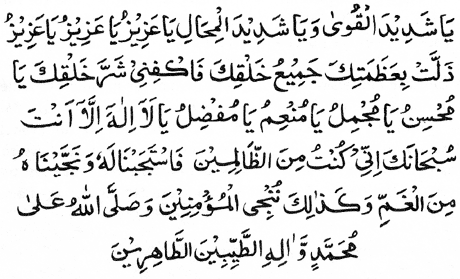 يَا شَدِيدَ الْقُوىٰ وَيَا شَدِيدَ الْمِحَالِ يَا عَزِيزُ يَا عَزِيزُ يَا عَزِيزُ
ذَلَّتْ بِعَظَمَتِكَ جَمِيعُ خَلْقِكَ فَاكْفِنِي شَرَّ خَلْقِكَ يَا
مُحْسِنُ يَا مُجْمِلُ يَا مُنْعِمُ يَا مُفْضِلُ يَا لَا اِلٰهَ اِلَّا اَنْتَ
سُبْحَانَكَ اِنِّي كُنْتُ مِنَ الظَّالِمِينَ فَاسْتَجَبْنَا لَهُ وَنَجَّيْنَاهُ
مِنَ الْغَمِّ وَكَذٰلِكَ نُنْجِي الْمُؤْمِنِينَ وَصَلَّى اللهُ عَلىٰ
مُحَمَّدٍ وَّاٰلِهِ الطَّيِّبِينَ الطَّاهِرِينَ